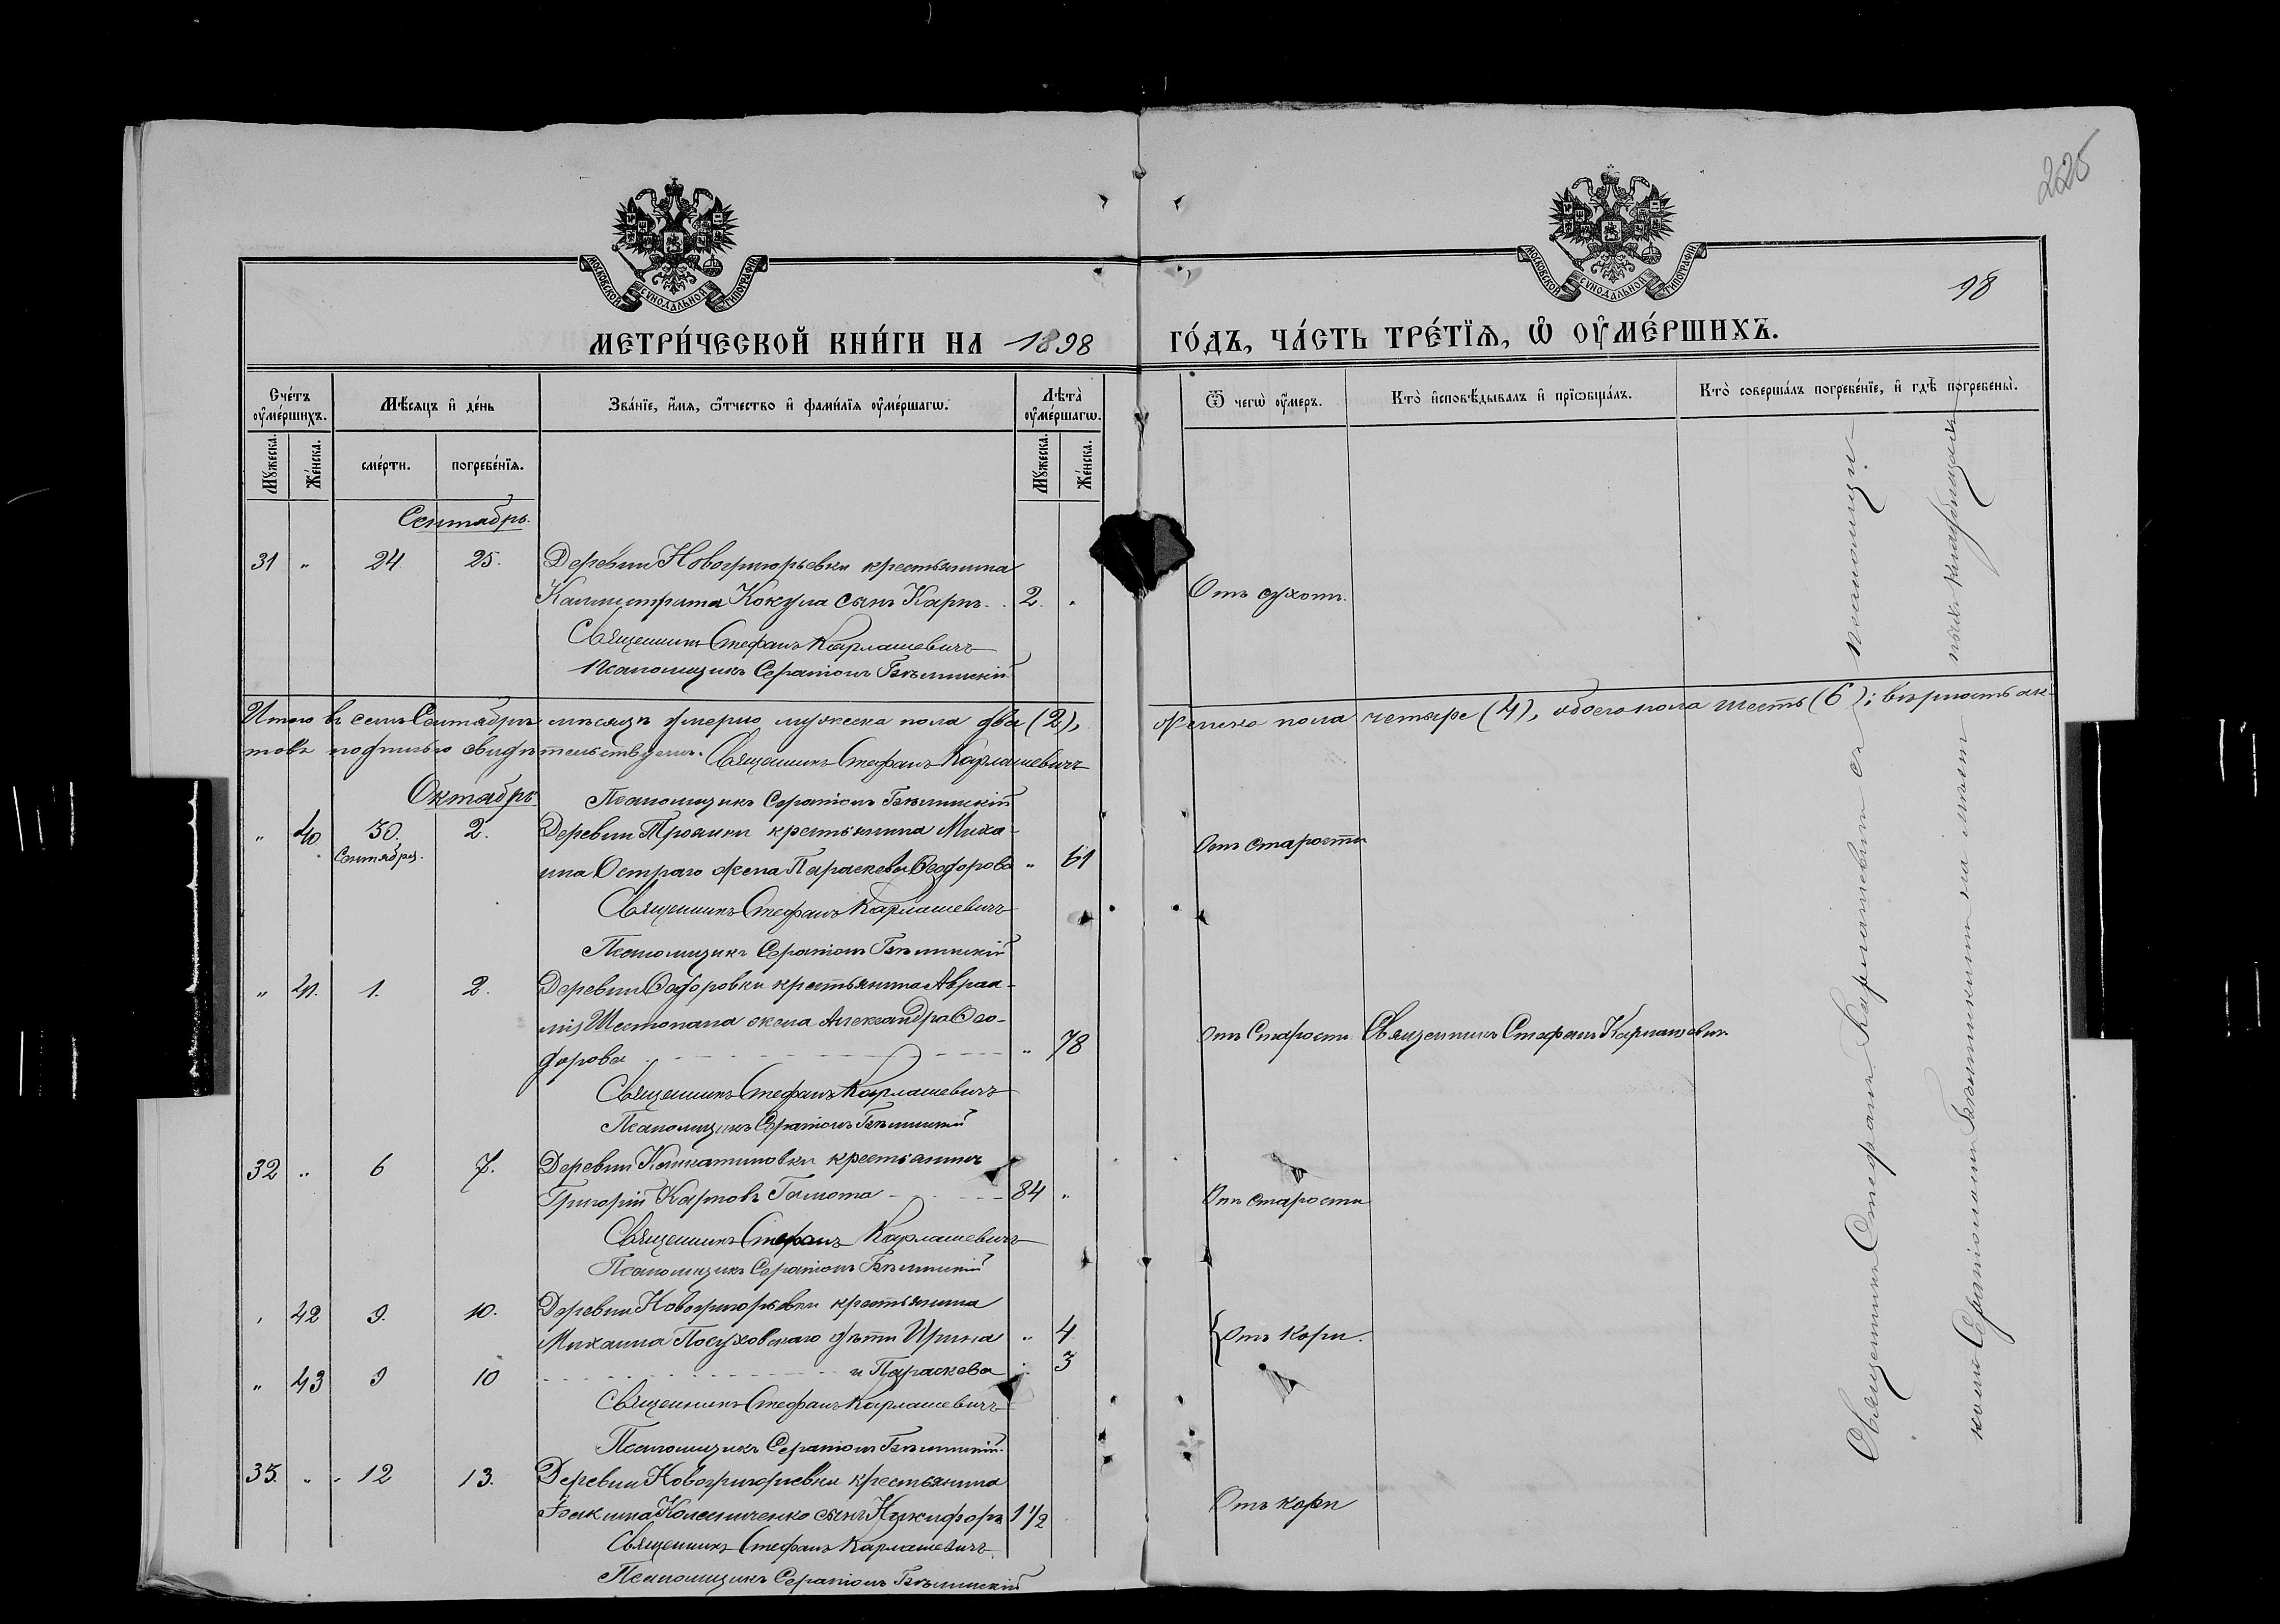 225
98
МОСКОВСКОЙ СѴНОДАЛЬНОЙ ТИПОГРАФІИ
МОСКОВСКОЙ СѴНОДАЛЬНОЙ ТИПОГРАФІИ
МЕТРИ́ЧЕСКОЙ КНИ́ГИ НА 1898 ГО́ДЪ, ЧА́СТЬ ТРЕ́ТЇѦ, Ѡ҆ ОУ҆МЕ́РШИХЪ.
Сче́тъ оу҆ме́ршихъ.
Мꙋ́жеска. Же́нска.
Мѣ́сяцъ и҆ де́нь
сме́рти. погребе́нїѧ.
Зва́нїе, и҆́мѧ, ѻ҆́тчество и҆ фами́лїѧ оу҆ме́ршагѡ.
Лѣ́та̀ оу҆ме́ршагѡ.
Мꙋ́жеска. Же́нска.
Ѿ чегѡ̀ оу҆́меръ.
Кто̀ и҆сповѣ́дывалъ и҆ прїѡбща́лъ.
Кто̀ соверша́лъ погребе́нїе, и҆ гдѣ̀ погребены̀.
Сентябрь.
31 " 24 25. Деревни Новогригорьевки крестьянина
Каллистрата Кокула сынъ Карпъ. 2. " Отъ сухот.
Священникъ Стефанъ Карлашевичъ
Псаломщикъ Серапіонъ Бѣлинскій
Итого въ семъ Сентябрѣ мѣсяцѣ умерло мужеска пола два (2), женска пола четыре (4), обоего пола шесть (6); вѣрность ак-
товъ подписью свидѣтельствуемъ. Священникъ Стефанъ Карлашевичъ
Октябрь Псаломщикъ Серапіонъ Бѣлинскій
" 40 30. Сентября. 2. Деревни Троянки крестьянина Миха-
ила Остраго жена Параскева Ѳеодорова " 61 Отъ старости
Священникъ Стефанъ Карлашевичъ
Псаломщикъ Серапіонъ Бѣлинскій
" 41. 1. 2. Деревни Ѳедоровки крестьянина Авраа-
мія Шестопала жена Александра Ѳео-
дорова " 78 Отъ Старости Священникъ Стефанъ Карлашевич.
Священникъ Стефанъ Карлашевичъ
Псаломщикъ Серапіонъ Бѣлинскій
32 " 6 7. Деревни крестьянинъ
Григорій Карповъ 84 " Отъ старости
Священникъ Стефанъ Карлашевичъ
Псаломщикъ Серапіонъ Бѣлинскій
" 42 9. 10. Деревни Новогригорьевки крестьянина
Михаила Посуховскаго дѣти Ирина " 4 Отъ кори.
" 43 9 10 и Параскева " 3
Священникъ Стефанъ Карлашевичъ
Псаломщикъ Серапіонъ Бѣлинскій.
35. " 12 13. Деревни Новогригориевки крестьянина
Колесниченко сынъ Никифоръ 1 1/2 Отъ кори
Священникъ Стефанъ Карлашевичъ
Псаломщикъ Серапіонъ Бѣлинскій
Священникъ Стефанъ Карлашевичъ съ псаломщи-
комъ Серапіономъ Бѣлинскимъ на кладбищахъ